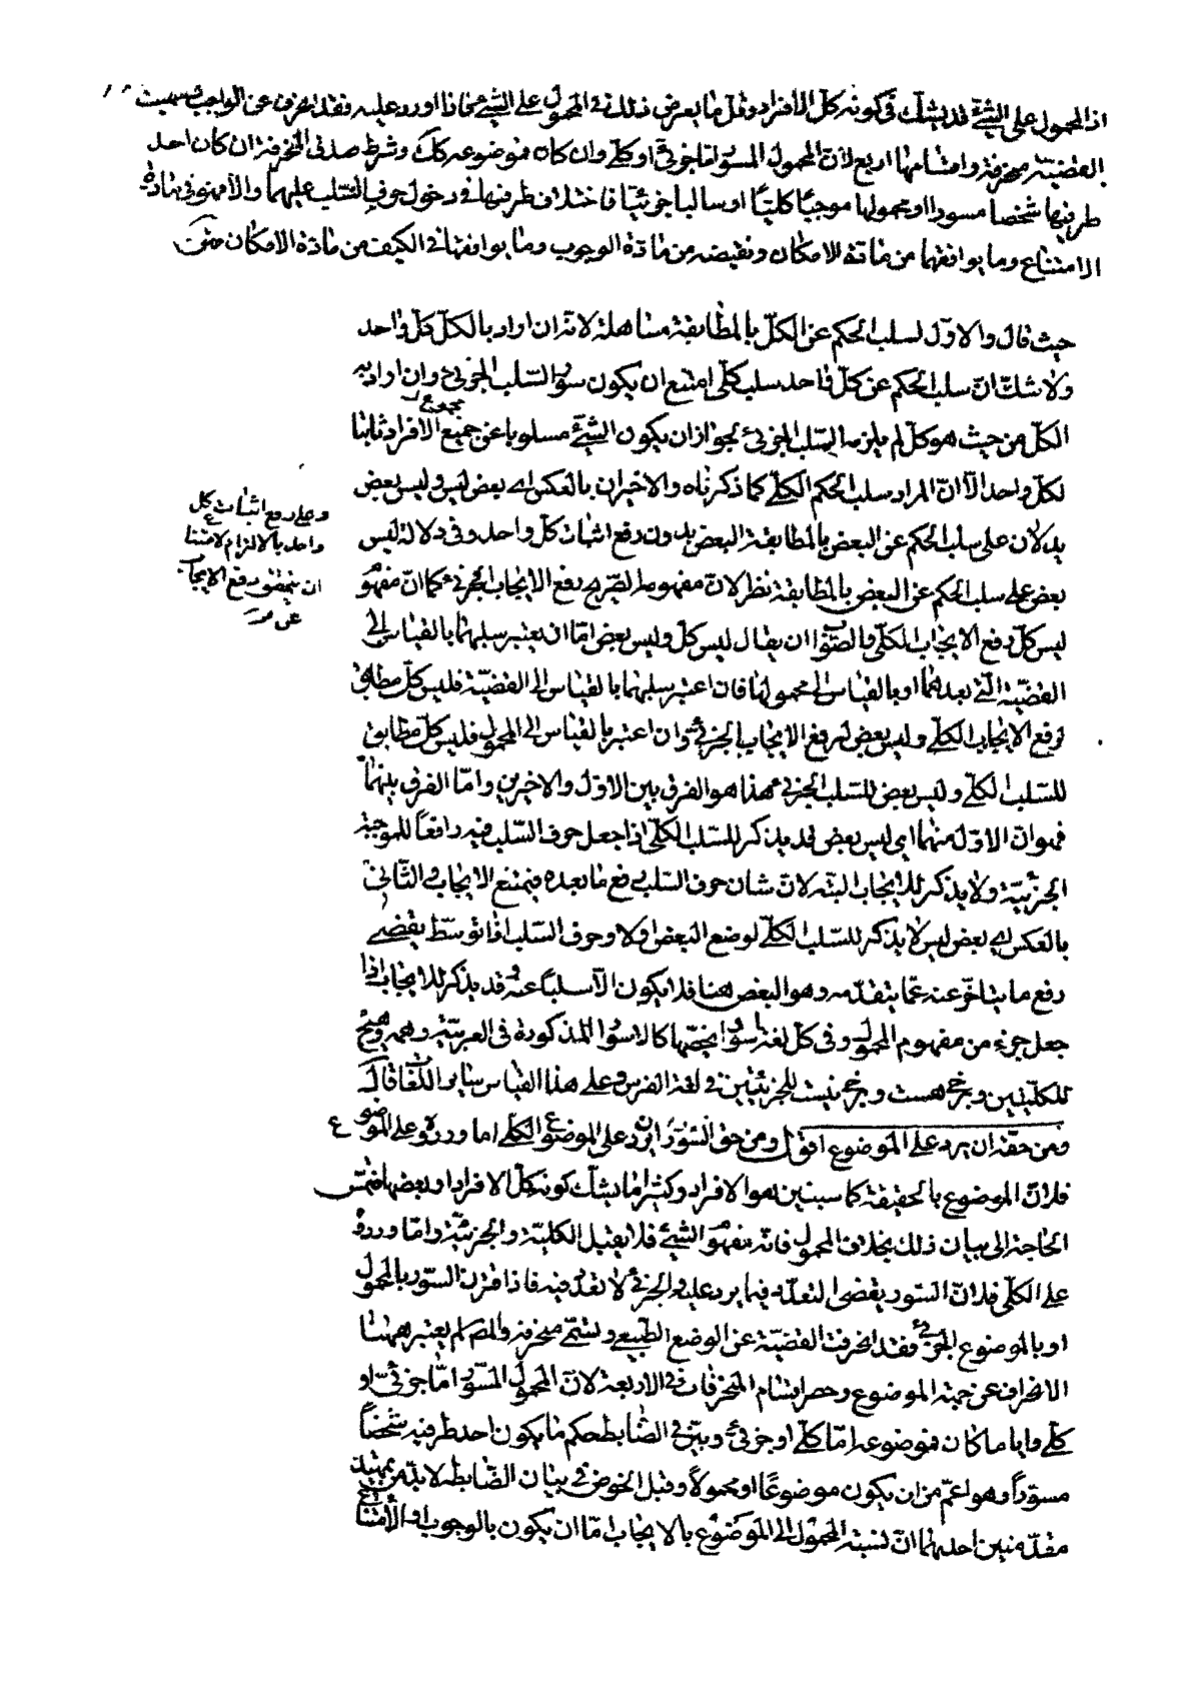 اذ المحمول على الشئ قد يشك فى كونه كل الافراد وقل ما يعرض ذلك فى المحمول على الشئ فاذا اورد عليه فقد انحرف عن الواجب فسميت
القضية منحرفة واقسامها اربع لان المحمول المسور اما جزئى او كلى وايا كان فموضوعه كذلك وشرط صدق المنحرفة ان كان احد
طرفيها شخصا مسورا او محمولها موجبا كليا او سالبا جزئيا فاختلاف طرفيها فى دخول حرف السلب عليهما والا فهو فى مادة
الامتناع وما يوافقها من مادة الامكان ونقيضه من مادة الوجوب وما يوافقها فى الكيف من مادة الامكان
حيث قال والاول لسلب الحكم عن الكل بالمطابقة مساهلة لانه ان اراد بالكل كل واحد
ولا شك ان سلب الحكم عن كل واحد سلب كلى امتنع ان يكون سور السلب الجزئى وان اراد به
الكل من حيث هو كل لم يلزمه السلب الجزئى لجواز ان يكون الشئ مسلوبا عن جميع الافراد ثابتا
مجموع
لكل واحد الا ان المراد سلب الحكم الكلى كما ذكرناه والاخيران بالعكس اى بعض ليس وليس بعض
يدلان على سلب الحكم عن البعض بالمطابقة البعض بدون رفع اثبات كل واحد وفى دلالة ليس
بعض على سلب الحكم عن البعض بالمطابقة نظر لان مفهومه الصريح رفع الايجاب الجزئى كما ان مفهوم
ليس كل رفع الايجاب الكلى والصواب ان يقال ليس كل وليس بعض اما ان يعتبر سلبهما بالقياس الى
القضية التى بعدهما او بالقياس الى محمولها فان اعتبر سلبهما بالقياس الى القضية فليس كل مطابق
لرفع الايجاب الكلى وليس بعض لرفع الايجاب الجزئى وان اعتبر بالقياس الى المحمول فليس كل مطابق
للسلب الكلى وليس بعض للسلب الجزئى هذا هو الفرق بين الاول والاخيرين واما الفرق بينهما
فهو ان الاول منهما اى ليس بعض قد يذكر للسلب الكلى اذا جعل حرف السلب فيه رافعا للموجبة
الجزئية ولا يذكر للايجاب البتة لان شان حرف السلب رفع ما بعده فيمتنع الايجاب والثانى
بالعكس اى بعض ليس لا يذكر للسلب الكلى لوضع البعض اولا وحرف السلب اذا توسط يقتضى
رفع ما يتاخر عنه عما يتقدمه وهو البعض هنا فلا يكون الا سلبا عنه وقد يذكر للايجاب اذا
جعل جزء من مفهوم المحمول وفى كل لغة سور يخصها كالاسوار المذكورة فى العربية وهمه وهيچ
للكليتين وبرخى هست وبرخى نيست للجزئيتين فى لغة الفرس وعلى هذا القياس ساير اللغات قال
ومن حقه ان يرد على الموضوع اقول ومن حق السور ان يرد على الموضوع الكلى اما وروده على الموضوع
فلان الموضوع بالحقيقة كما سنبين هو الافراد وكثيرا ما يشك كونه كل الافراد او بعضها فتمس
الحاجة الى بيان ذلك بخلاف المحمول فانه مفهوم الشئ فلا يقبل الكلية والجزئية واما وروده
على الكلى فلان السور يقتضى التعدد فيما يرد عليه والجزئى لا تعدد فيه فاذا اقترن السور بالمحمول
او بالموضوع الجزئى فقد انحرفت القضية عن الوضع الطبيعى وتسمى منحرفة والمص لم يعتبر ههنا
الانحراف عن جهة الموضوع وحصر اقسام المنحرفات فى الاربعة لان المحمول المسور اما جزئى او
كلى وايا ما كان فموضوعه اما كلى او جزئى وبين فى الضابط حكم ما يكون احد طرفيه شخصا
مسورا وهو اعم من ان يكون موضوعا او محمولا وقبل الخوض فى بيان الضابط لا بد من تمهيد
مقدمتين احديهما ان نسبة المحمول الى الموضوع بالايجاب اما ان يكون بالوجوب او الامتناع
وعلى رفع اثبات كل
واحد بالالتزام لامتناع
ان يتحقق رفع الايجاب
عن